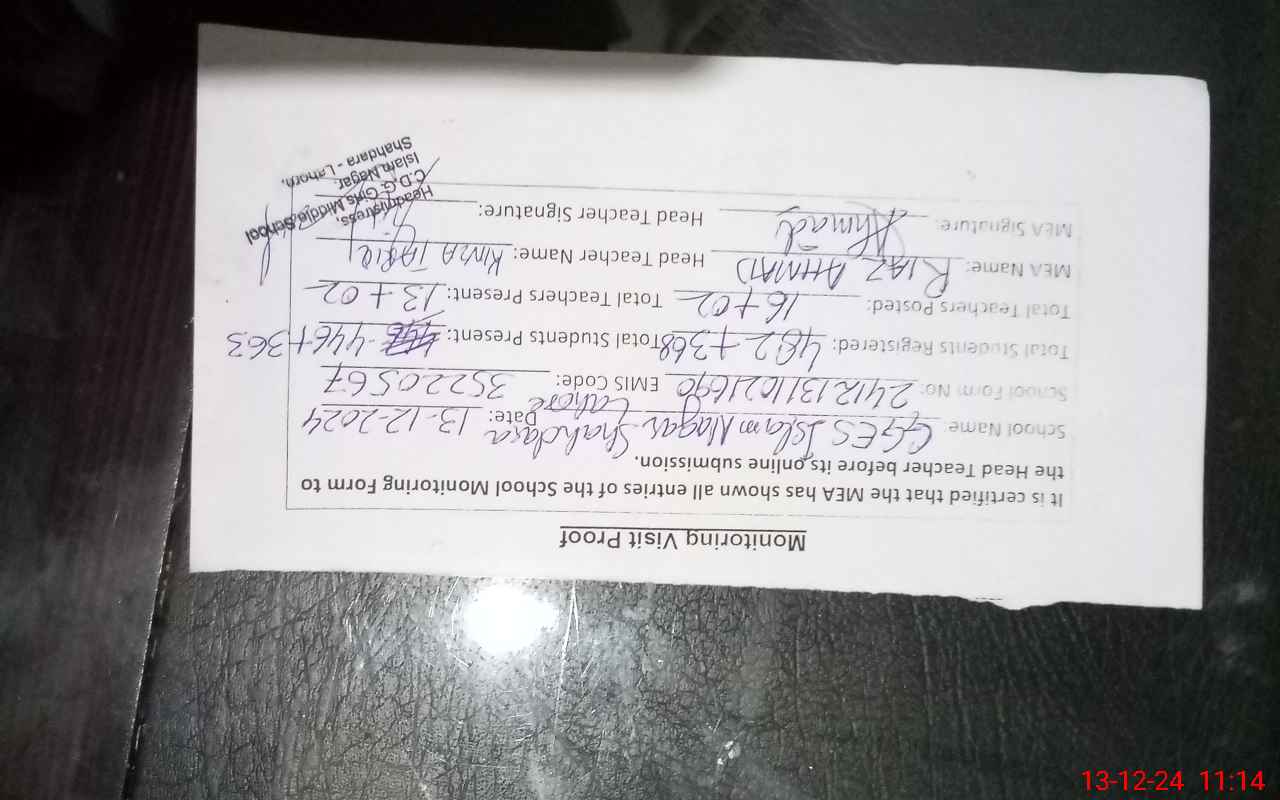 Monitoring Visit Proof
It is certified that the MEA has shown all entries of the School Monitoring Form to
the Head Teacher before its online submission.
School Name: GGES Islam Nagar Shahdara Lahore Date: 13-12-2024
School Form No: 24121311021690 EMIS Code: 35220567
Total Students Registered: 482+368 Total Students Present: 446+363
Total Teachers Posted: 16+02 Total Teachers Present: 13+02
MEA Name: RIAZ AHMAD Head Teacher Name: KINZA TARIQ
MEA Signature: Ahmad Head Teacher Signature:
Headmistress,
C.D.G. Girls Middle School
Islam Nagar
Shahdara - Lahore.
13-12-24 11:14